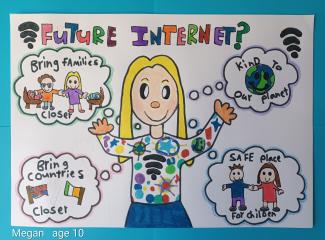 FUTURE INTERNET?
Bring families
closer
KIND TO
Our planet
Bring
countries
closer
SAFE place
For children
Megan age 10